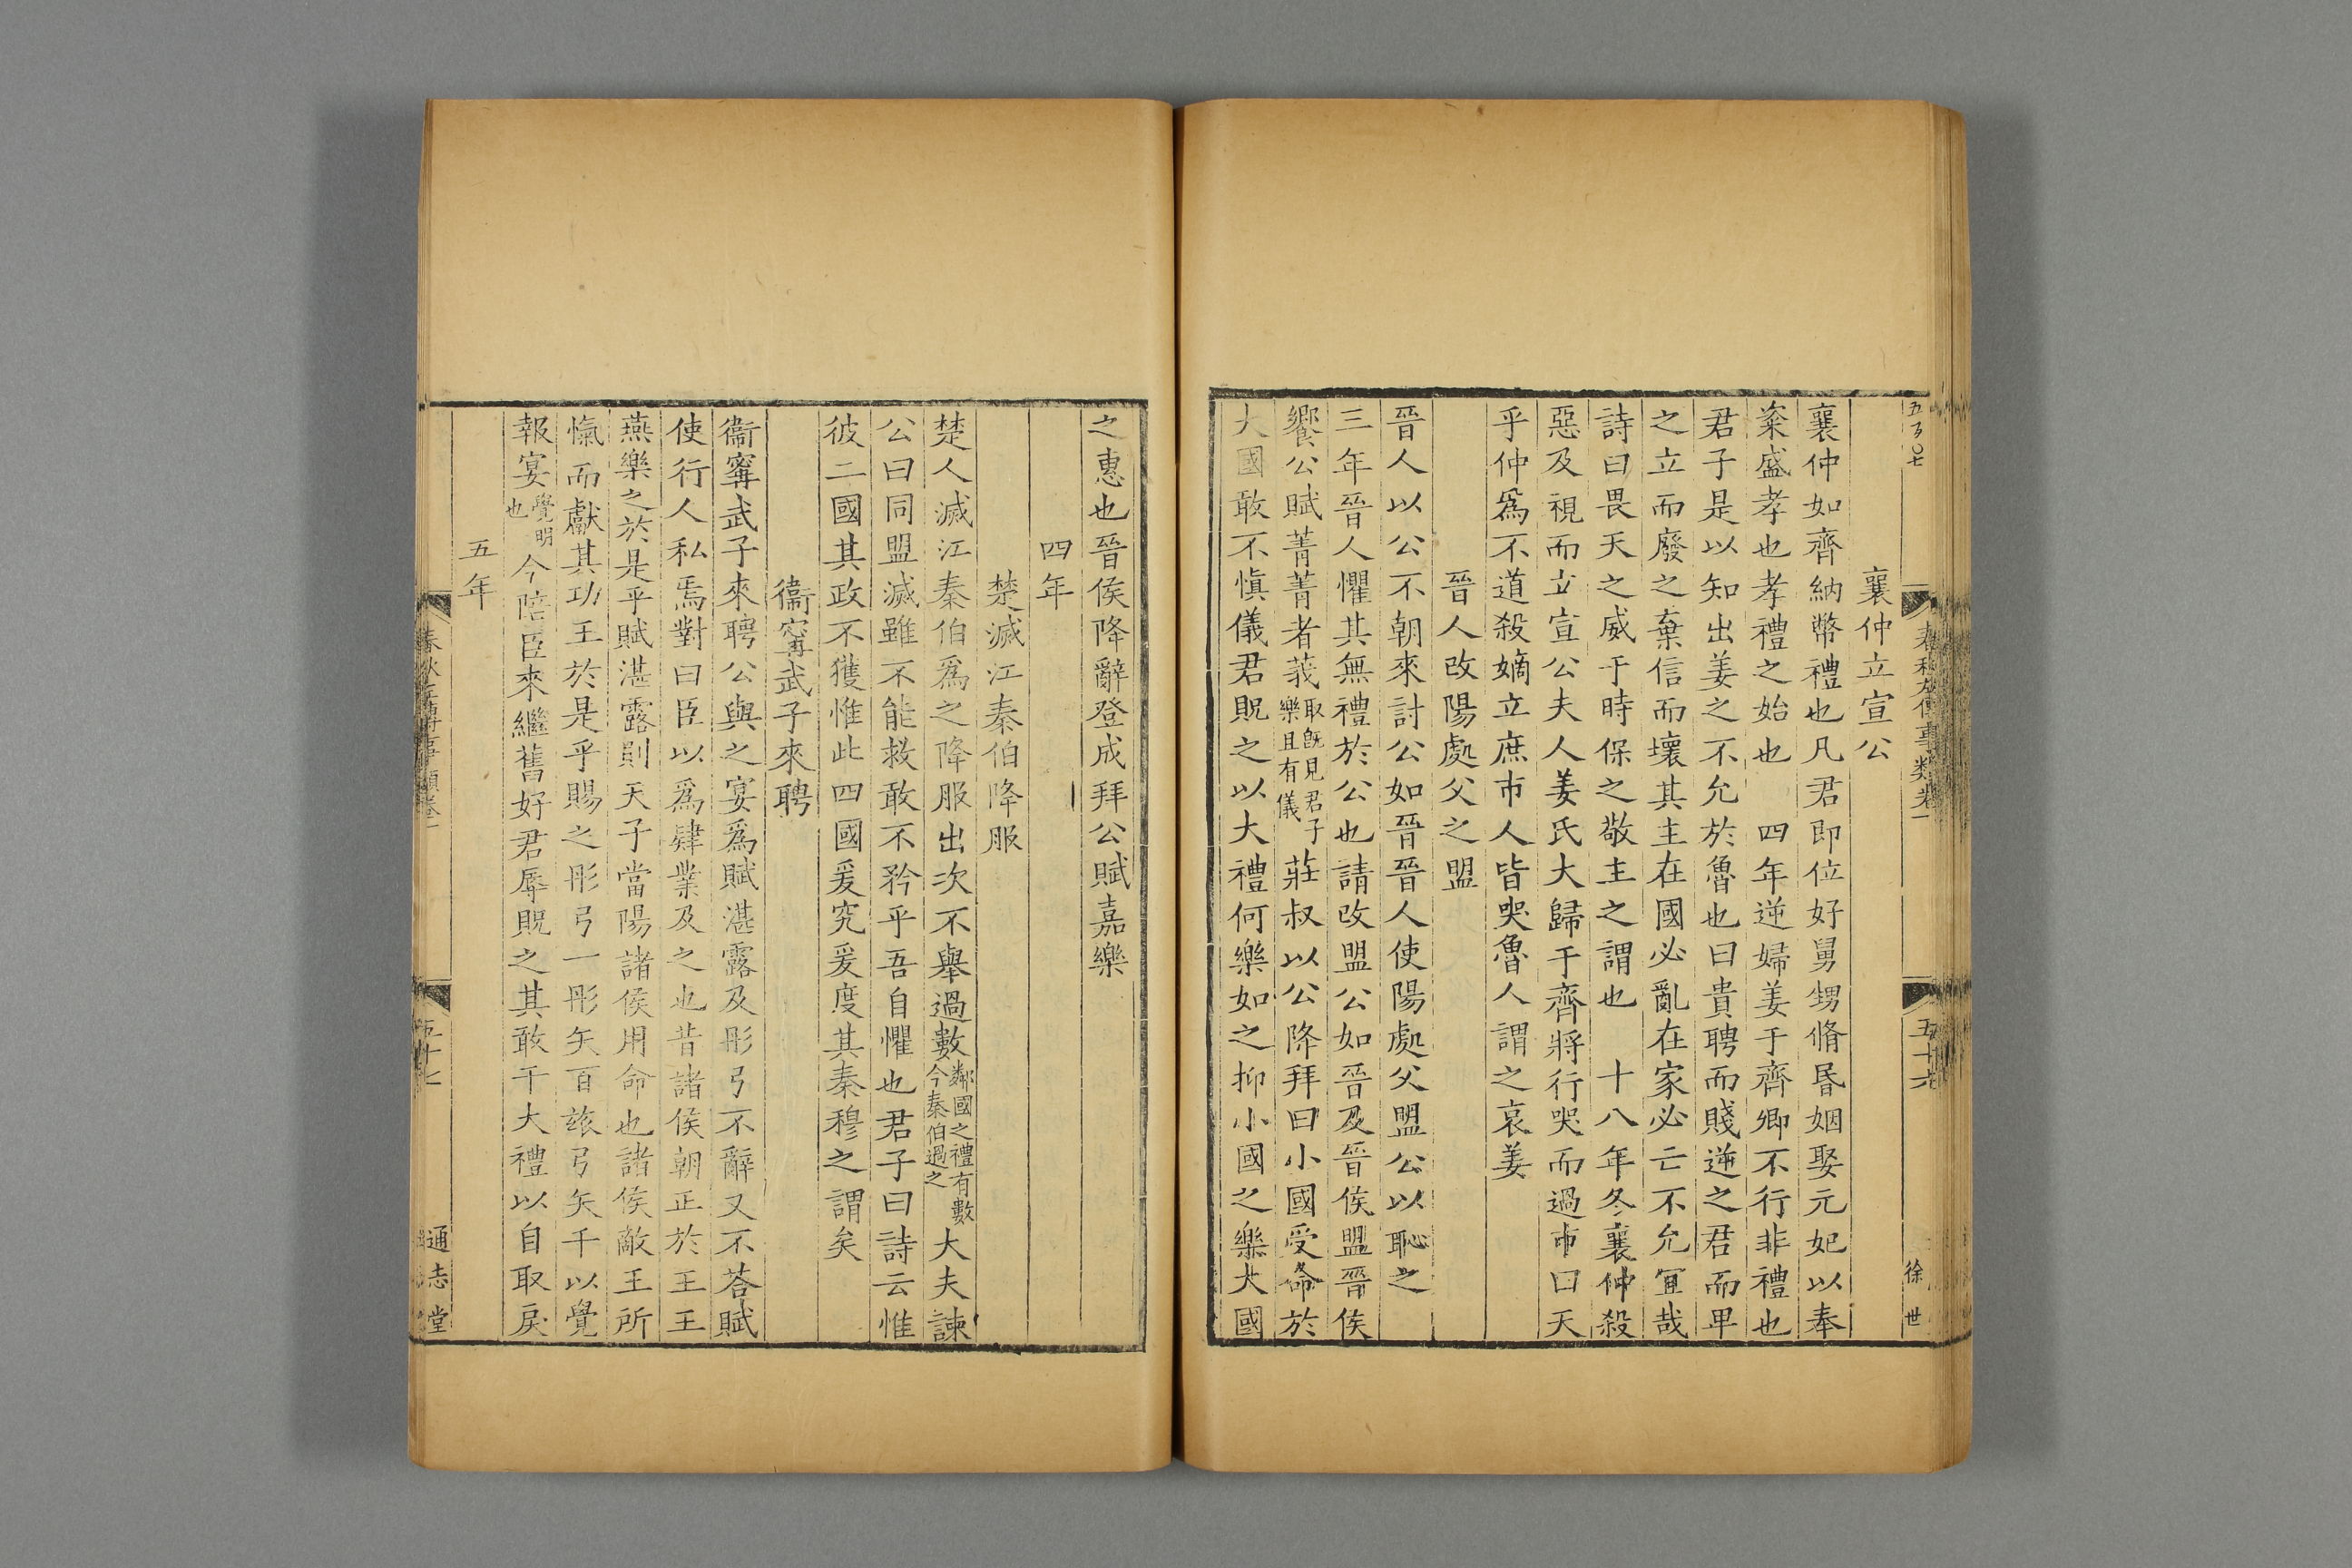 五百〇七
五十六
徐世
襄仲立宣公
襄仲如齊納幣禮也凡君即位好舅甥脩昬姻娶元妃以奉
粢盛孝也孝禮之始也　四年逆婦姜于齊卿不行非禮也
君子是以知出姜之不允於魯也曰貴聘而賤逆之君而畢
之立而廢之棄信而壞其主在國必亂在家必亡不允冝哉
詩曰畏天之威于時保之敬主之謂也　十八年冬襄仲殺
惡及視而立宣公夫人姜氏大歸于齊將行哭而過市曰天
乎仲爲不道殺嫡立庶市人皆哭魯人謂之哀姜
晉人改陽處父之盟
晉人以公不朝來討公如晉晉人使陽處父盟公以恥之
三年晉人懼其無禮於公也請改盟公如晉及晉侯盟晉侯
饗公賦菁菁者莪取旣見君子樂且有儀莊叔以公降拜曰小國受命於
大國敢不愼儀君貺之以大禮何樂如之抑小國之樂大國
之惠也晉侯降辭登成拜公賦嘉樂
四年
楚滅江秦伯降服
楚人滅江秦伯爲之降服出次不舉過數鄰國之禮有數今秦伯過之大夫諫
公曰同盟滅雖不能救敢不矜乎吾自懼也君子曰詩云惟
彼二國其政不獲惟此四國爰究爰度其秦穆之謂矣
衞甯武子來聘
衞甯武子來聘公與之宴爲賦湛露及彤弓不辭又不荅賦
使行人私焉對曰臣以爲肄業及之也昔諸侯朝正於王王
燕樂之於是乎賦湛露則天子當陽諸侯用命也諸侯敵王所
愾而獻其功王於是乎賜之彤弓一彤矢百玈弓矢千以覺
報宴覺明也今陪臣來繼舊好君辱貺之其敢干大禮以自取戾
五年
春秋左傳事類卷一
五十七
通志堂